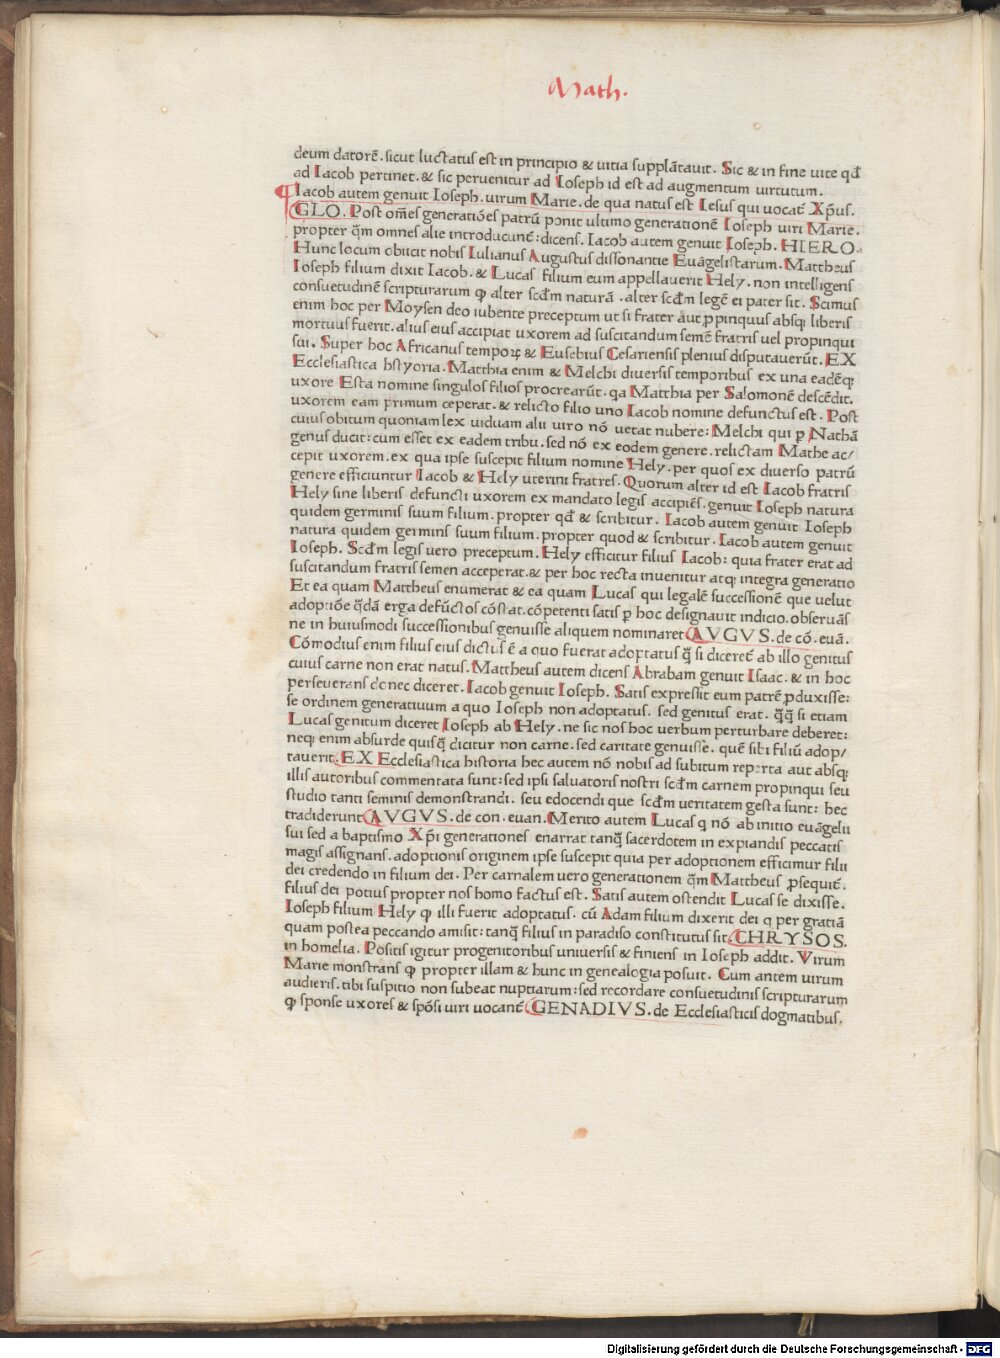 Math.
deum datorē. sicut luctatus est in principio & uitia supplātauit. Sic & in fine uite qđ
ad Iacob pertinet. & sic peruenitur ad Ioseph id est ad augmentum uirtutum.
Iacob autem genuit Ioseph. uirum Marie. de qua natus est Iesus qui uocat᷑ Xp̄us.
GLO. Post om̄es generatiōes patrū ponit ultimo generationē Ioseph uiri Marie.
propter q̄m omnes alie introducunt᷑: dicens. Iacob autem genuit Ioseph. HIERO.
Hunc locum obiicit nobis Iulianus Augustus dissonantie Euāgelistarum. Mattheus
Ioseph filium dixit Iacob. & Lucas filium eum appellauerit Hely. non intelligens
consuetudinē scripturarum ꝙ alter scđm naturā. alter scđm legē ei pater sit. Scimus
enim hoc per Moysen deo iubente preceptum ut si frater aut ꝓpinquus absqꝫ liberis
mortuus fuerit. alius eius accipiat uxorem ad suscitandum semē fratris uel propinqui
sui. Super hoc Africanus tempoꝝ & Eusebius Cesariensis plenius disputauerūt. EX
Ecclesiastica hystoria. Matthia enim & Melchi diuersis temporibus ex una eadēqꝫ
uxore Esta nomine singulos filios procrearūt. qa Matthia per Salomonē descēdit.
uxorem eam primum ceperat. & relicto filio uno Iacob nomine defunctus est. Post
cuius obitum quoniam lex uiduam alii uiro nō uetat nubere: Melchi qui ꝑ Nathā
genus ducit: cum esset ex eadem tribu. sed nō ex eodem genere. relictam Mathe ac/
cepit uxorem. ex qua ipse suscepit filium nomine Hely. per quos ex diuerso patrū
genere efficiuntur Iacob & Hely uterini fratres. Quorum alter id est Iacob fratris
Hely sine liberis defuncti uxorem ex mandato legis accipiēs. genuit Ioseph natura
quidem germinis suum filium. propter qđ & scribitur. Iacob autem genuit Ioseph
natura quidem germins suum filium. propter quod & scribitur. Iacob autem genuit
Ioseph. Scđm legis uero preceptum. Hely efficitur filius Iacob: quia frater erat ad
suscitandum fratris semen acceperat. & per hoc recta inuenitur atqꝫ integra generatio
Et ea quam Mattheus enumerat & ea quam Lucas qui legalē successionē que uelut
adoptiōe q̄dā erga defūctos cōstat. cōpetenti satis ꝑ hoc designauit indicio. obseruās
ne in huiusmodi successionibus genuisse aliquem nominaret AVGVS. de cō. euā.
Cōmodius enim filius eius dictus ē a quo fuerat adoptatus q̄ si diceret᷑ ab illo genitus
cuius carne non erat natus. Mattheus autem dicens Abrabam genuit Isaac. & in hoc
perseuerans donec diceret. Iacob genuit Ioseph. Satis expressit eum patrē ꝓduxisse:
se ordinem generatiuum a quo Ioseph non adoptatus. sed genitus erat. q̄q̄ si etiam
Lucas genitum diceret Ioseph ab Hely. ne sic nos hoc uerbum perturbare deberet:
neqꝫ enim absurde quisq̄ dicitur non carne. sed caritate genuisse. quē sibi filiū adop/
tauerit. EX Ecclesiastica historia hec autem nō nobis ad subitum reperta aut absqꝫ
illis autoribus commentata sunt: sed ipsi saluatoris nostri scđm carnem propinqui seu
studio tanti seminis demonstrandi. seu edocendi que scđm ueritatem gesta sunt: hec
tradiderunt AVGVS. de con. euan. Merito autem Lucas q nō ab initio euāgelii
sui sed a baptismo Xp̄i generationes enarrat tanq̄ sacerdotem in expiandis peccatis
magis assignans. adoptionis originem ipse suscepit quia per adoptionem efficimur filii
dei credendo in filium dei. Per carnalem uero generationem q̄m Mattheus ꝓsequit᷑.
filius dei potius propter nos homo factus est. Satis autem ostendit Lucas se dixisse.
Ioseph filium Hely ꝙ illi fuerit adoptatus. cū Adam filium dixerit dei q per gratiā
quam postea peccando amisit: tanq̄ filius in paradiso constitutus sit. CHRYSOS.
in homelia. Positis igitur progenitoribus uniuersis & finiens in Ioseph addit. Virum
Marie monstrans ꝙ propter illam & hunc in genealogia posuit. Cum antem uirum
audieris. tibi suspitio non subeat nuptiarum: sed recordare consuetudinis scripturarum
ꝙ sponse uxores & spōsi uiri uocant᷑ GENADIVS. de Ecclesiasticis dogmatibus.
Digitalisierung gefördert durch die Deutsche Forschungsgemeinschaft - DFG